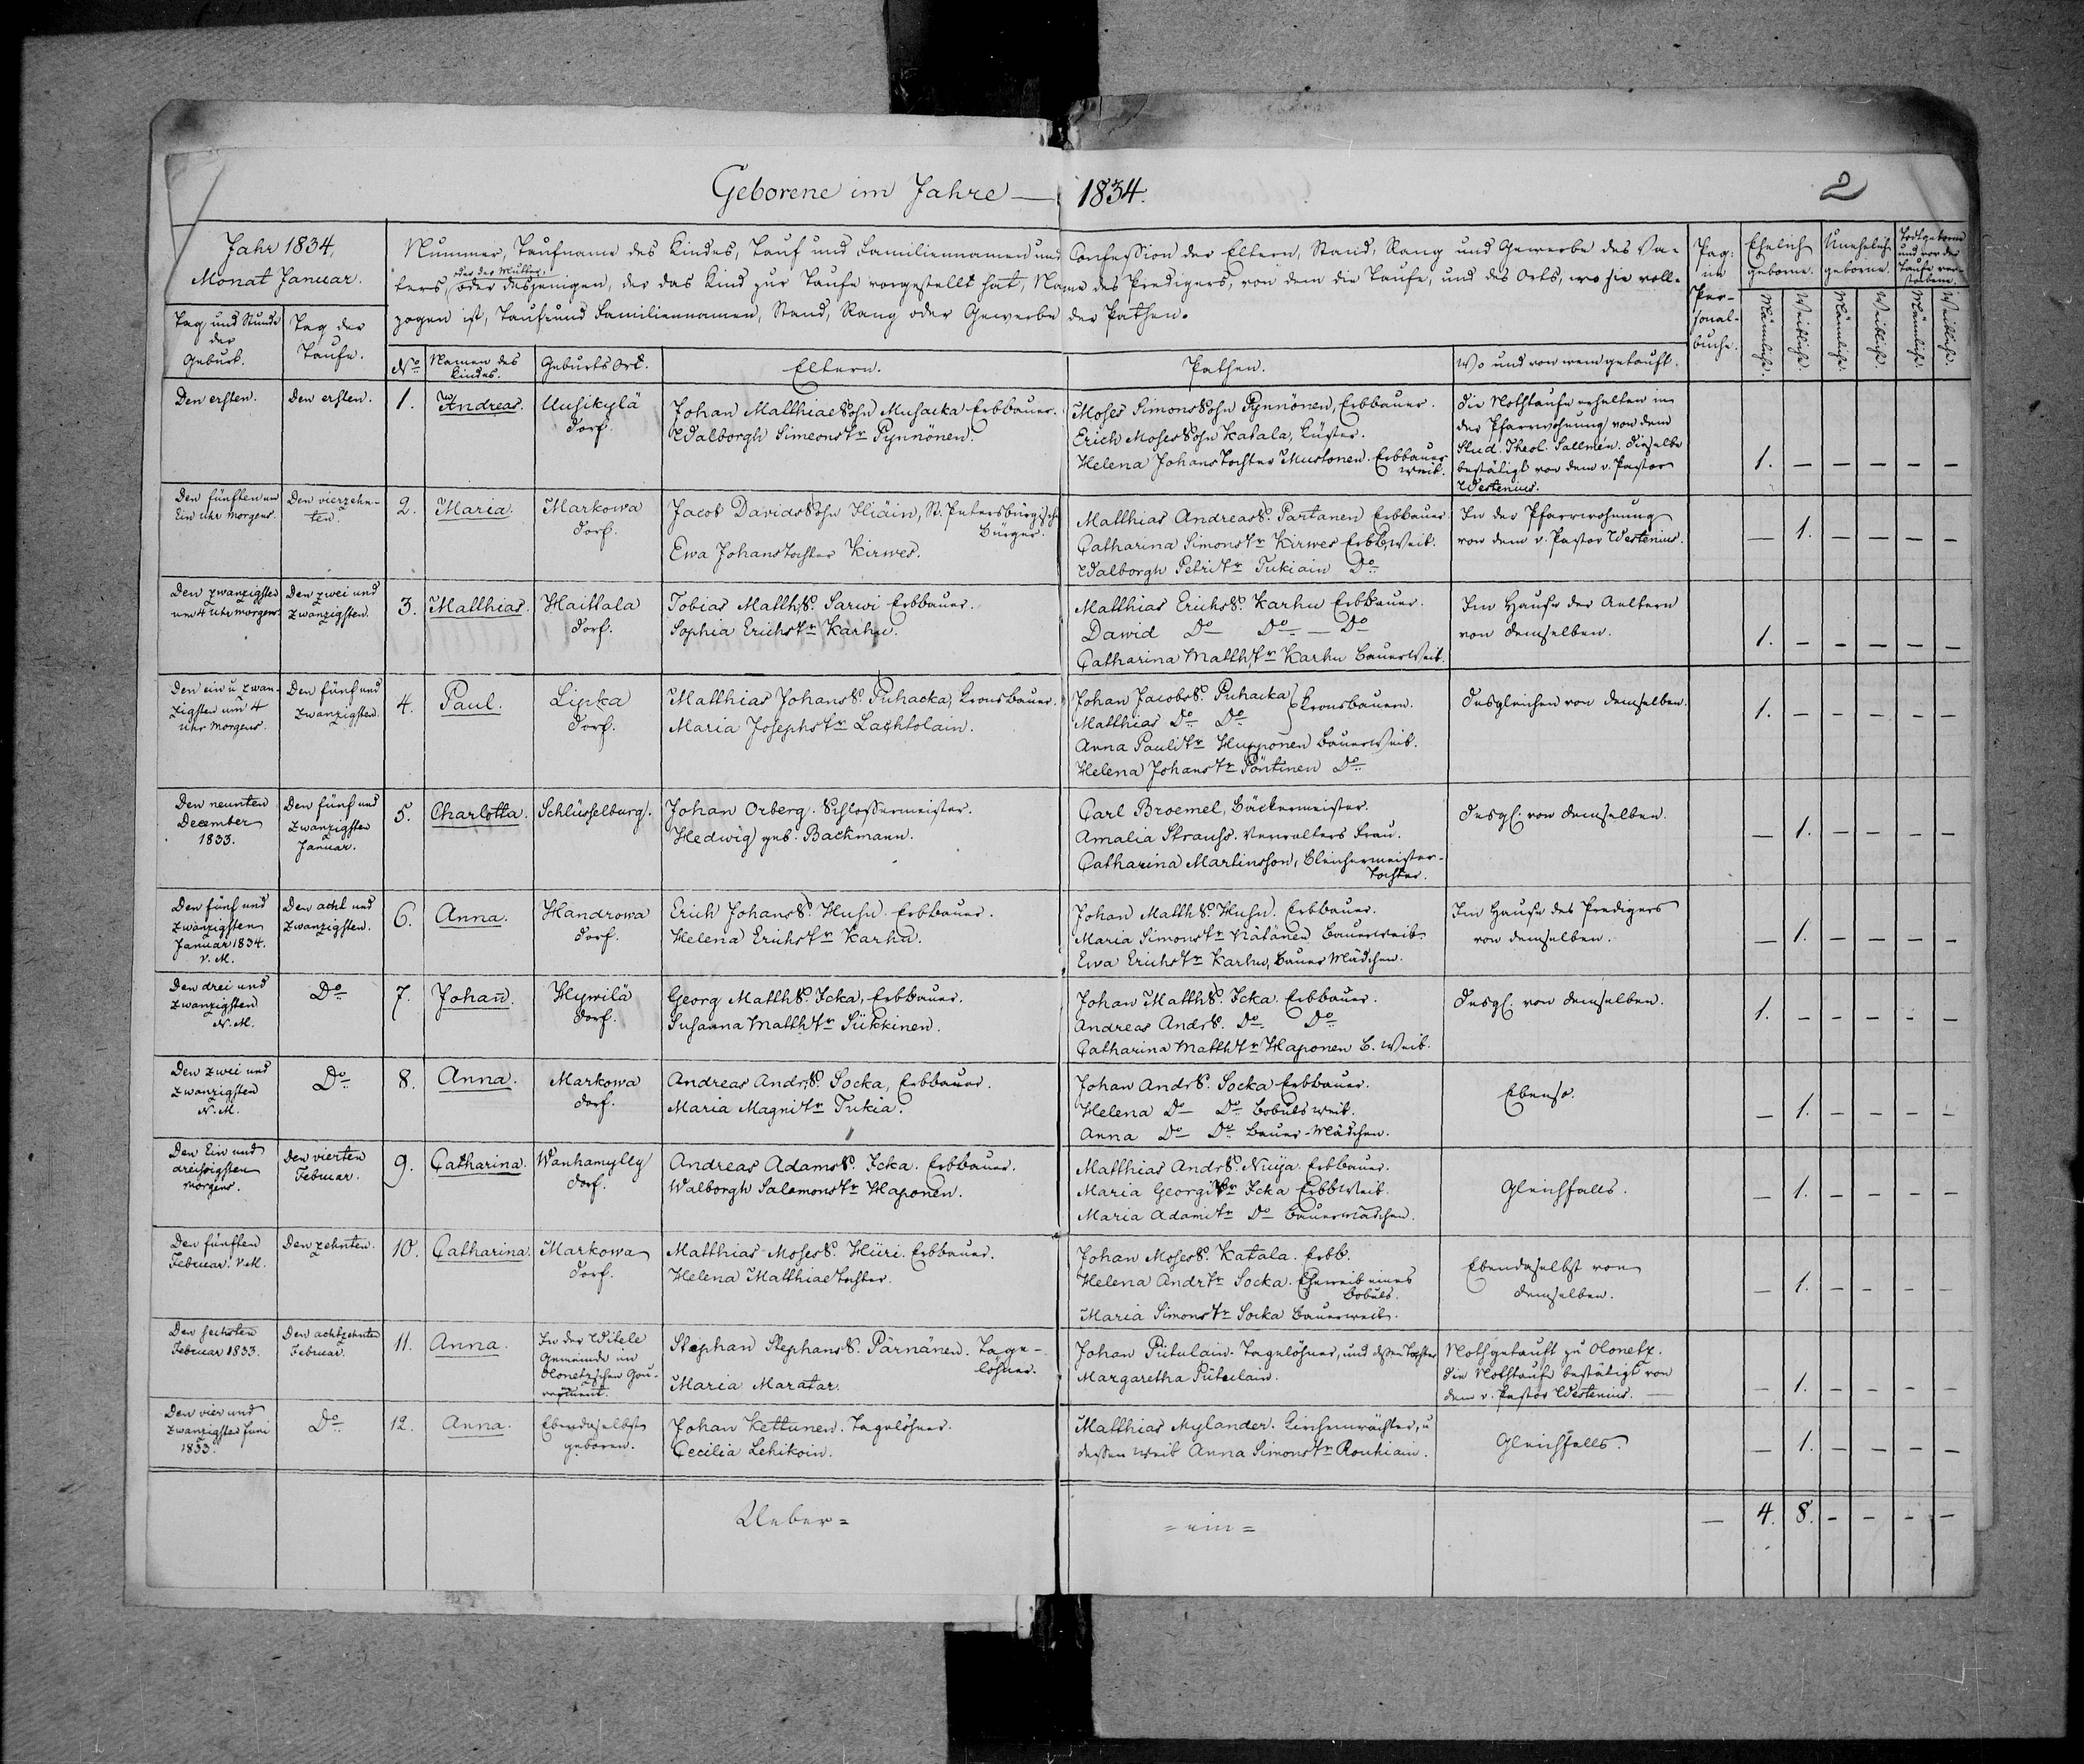 Geborene im Jahre — 1834.
2
Jahr 1834,
Monat Januar.
Nummer, Taufname des Kindes, Tauf und Familiennamen und Confession der Eltern, Stand, Rang und Gewerbe des Va-
oder der Mutter,
ters, oder desjenigen, der das Kind zur Taufe vorgestellt hat, Name des Predigers, von dem die Taufe, und des Orts, wo sie voll-
zogen ist, Tauf und Familiennamen, Stand, Rang oder Gewerbe der Pathen.
Pag:
im
Per-
sonal-
buche.
Ehelich
geborne.
Unehelich
geborne.
Todtgeborne
und vor der
Taufe ver-
storbene.
Männliche.
Weibliche.
Männliche.
Weibliche.
Männliche.
Weibliche.
Tag und Stunde
der
Geburt.
Tag der
Taufe.
No
Namen des
Kindes.
Geburts Ort.
Eltern.
Pathen.
Wo und von wem getauft.
Den ersten.
Den ersten.
1.
Andreas.
Uusikylä
dorf.
Johan Matthiae Sohn Musacka Erbbauer.
Walborgh Simeons Tr Pynnönen.
Moses Simons Sohn Pynnönen, Erbbauer.
Erich Moses Sohn Katala, Küster.
Helena Johans Tochter Mustonen. Erbbauer
weib.
Die Nothtaufe erhalten in
der Pfarrwohnung von dem
Stud. Theol. Sallmén. Dieselbe
bestätigt von dem v. Pastor
Westenius.
1. — — — — —
Den fünften um
Ein uhr morgens.
Den vierzehn-
ten.
2.
Maria.
Markowa
dorf.
Jacob Davids Sohn Hiäin, St. Petersburgischer
Bürger.
Ewa Johans Tochter Kirwes.
Matthias Andreas S. Partanen Erbbauer
Catharina Simons Tr Kirwes Erbb. Weib.
Walborgh Petri Tr Tukiain Do
In der Pfarrwohnung
von dem v. Pastor Westenius.
— 1. — — — —
Den zwanzigsten
um 4 uhr morgens
Den zwei und
zwanzigsten.
3.
Matthias.
Haittala
dorf.
Tobias Matth. S. Sarwi Erbbauer.
Sophia Erichs Tr Karhu.
Matthias Erichs S. Karhu Erbbauer.
Dawid Do Do — Do
Catharina Matth Tr Karhu Bauer Weib.
Im Hause der Aeltern
von demselben.
1. — — — — —
Den ein u. zwan-
zigsten um 4
uhr morgens.
Den fünf und
zwanzigsten.
4.
Paul.
Lipka
dorf.
Matthias Johans S. Puhacka, Kronsbauer.
Maria Josephs Tr Lachtolain.
Johan Jacobs S. Puhacka } Kronsbauern.
Matthias Do Do
Anna Pauli Tr Hupponen Bauer Weib.
Helena Johans Tr Pöntinen Do
Desgleichen von demselben.
1. — — — — —
Den neunten
December
1833.
Den fünf und
zwanzigsten
Januar.
5.
Charlotta.
Schlüsselburg.
Johan Orberg. Schlossermeister.
Hedwig geb. Backmann.
Carl Broemel, Bäckermeister.
Amalia Strauss. Verwalters Frau.
Catharina Martinsson, Bleichermeister-
Tochter.
Desgl. von demselben.
— 1. — — — —
Den fünf und
zwanzigsten
Januar 1834.
V. M.
Den acht und
zwanzigsten.
6.
Anna.
Handrowa
dorf.
Erich Johans S. Husu. Erbbauer.
Helena Erichs Tr Karhu.
Johan Matth S. Husu. Erbbauer.
Maria Simons Tr Nätänen Bauerweib.
Ewa Erichs Tr Karhu, Bauer Mädchen.
Im Hause des Predigers
von demselben.
— 1. — — — —
Den drei und
zwanzigsten
N. M.
Do
7.
Johan.
Hywilä
dorf.
Georg Matth S. Icka, Erbbauer.
Susanna Matth Tr Sückinen.
Johan Matth S. Icka. Erbbauer.
Andreas Andr S. Do Do
Catharina Matth Tr Haponen B. Weib.
Desgl. von demselben.
1. — — — — —
Den zwei und
zwanzigsten
N. M.
Do
8.
Anna.
Markowa
dorf.
Andreas Andr. S. Socka, Erbbauer.
Maria Magni Tr Tukia.
Johan Andr S. Socka Erbbauer.
Helena Do Do Bobuls weib.
Anna Do Do Bauer-Mädchen.
Ebenso.
— 1. — — — —
Den Ein und
dreissigsten
morgens.
Den vierten
Februar.
9.
Catharina.
Wanhamylly
dorf.
Andreas Adams S. Icka. Erbbauer.
Walborgh Salomons Tr Haponen.
Matthias Andr S. Nuija. Erbbauer.
Maria Georgi Tr Icka Erbb Weib.
Maria Adami Tr Do Bauermädchen.
Gleichfalls.
— 1. — — — —
Den fünften
Februar. V. M.
Den zehnten.
10.
Catharina.
Markowa
dorf.
Matthias Moses S. Hüri. Erbbauer.
Helena Matthiae Tochter.
Johan Moses S. Katala. Erbb.
Helena Andr Tr Socka. Eheweib eines
Bobuls.
Maria Simons Tr Socka Bauerweib.
Ebendaselbst von
demselben.
— 1. — — — —
Den sechsten
Februar 1833.
Den achtzehnten
Februar.
11.
Anna.
In der Witele
Gemeinde im
Olonetzschen Gou-
vernement.
Stephan Stephans S. Pärnänen. Tage-
löhner.
Maria Maratar.
Johan Pütulain. Tagelöhner, und dessen Tochter
Margaretha Pütulain.
Nothgetauft zu Olonetz.
Die Nothtaufe bestätigt von
dem v. Pastor Westenius. —
— 1. — — — —
Den vier und
zwanzigsten Juni
1833.
Do
12.
Anna.
Ebendaselbst
geboren.
Johan Kettunen. Tagelöhner.
Cecilia Lehikoin.
Matthias Nylander. Kirchenwächter, u
dessen Weib Anna Simons Tr Roukiain.
Gleichfalls.
— 1. — — — —
Ueber =
= ein =
— 4. 8. — — — —